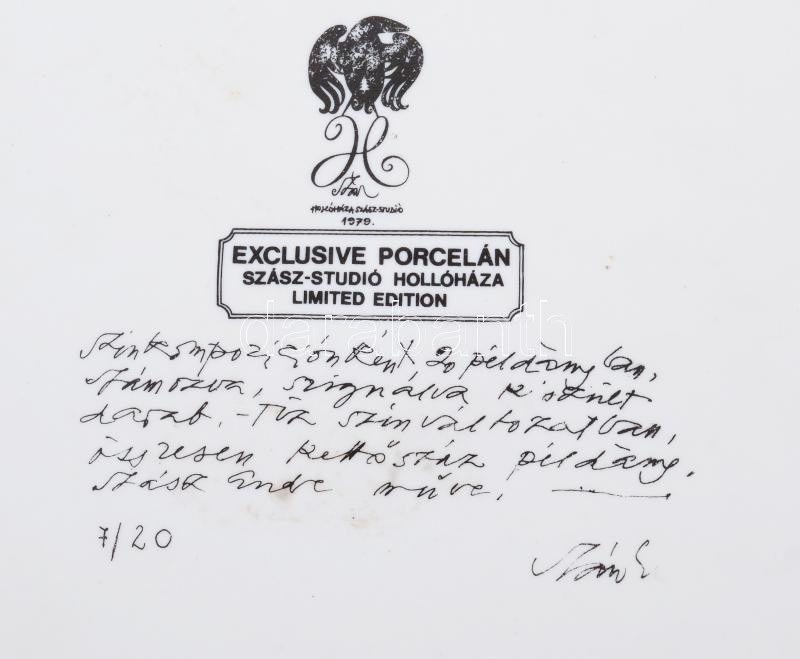 H
Szász
HOLLÓHÁZA SZÁSZ-STUDIÓ
1979.
EXCLUSIVE PORCELÁN
SZÁSZ-STUDIÓ HOLLÓHÁZA
LIMITED EDITION
darabanth
Szinkompoziciónként, 20 példányban,
számozva, szignálva készült
darab. - Tiz szinváltozatban,
összesen kettőszáz példány.
Szász Endre műve.
7/20
Szász E